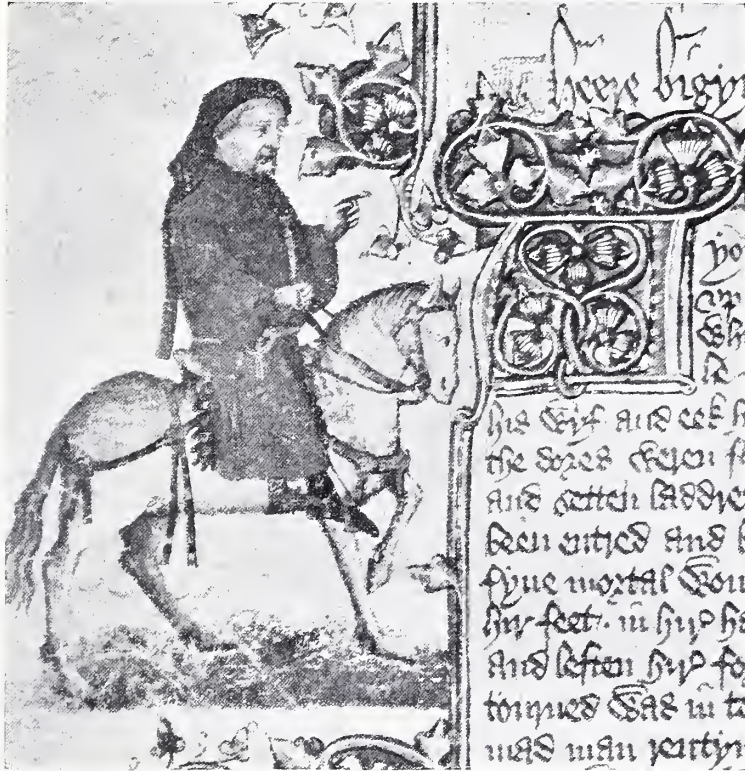 heere bigyn
yo
up
Wh
his wyf and eek h
the dores weren f
And setten laddre
been entred and b
fyue mortal wou
hir feet . in hir h
And leften hir fo
tourned was in t
mad man rentyn